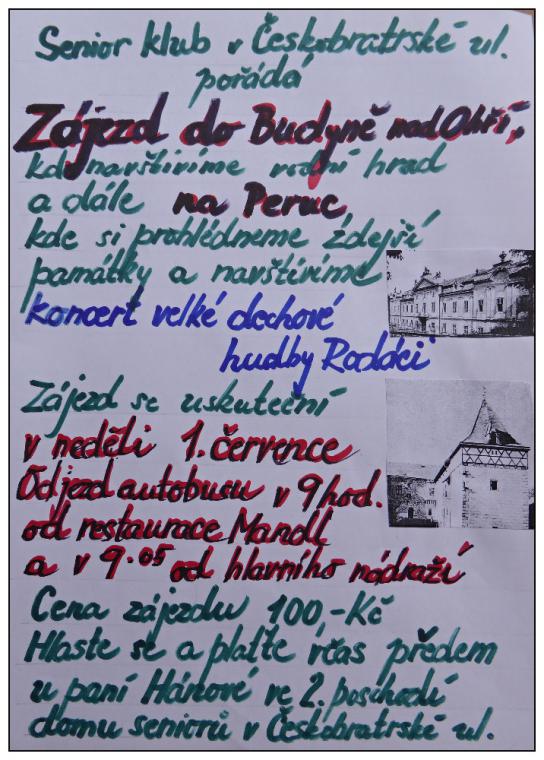 Senior klub v Českobratrské ul.
pořádá
Zájezd do Budyně nad Ohří,
kde navštívíme vodní hrad
a dále na Peruc
kde si prohlédneme zdejší
památky a navštívíme
koncert velké dechové
hudby Rodáci
Zájezd se uskuteční
v neděli 1. července
Odjezd autobusu v 9 hod.
od restaurace Mandl
a v 9.05 od hlavního nádraží
Cena zájezdu 100,-Kč
Hlaste se a plaťte včas předem
u paní Hánové ve 2. poschodí
domu seniorů v Českobratrské ul.